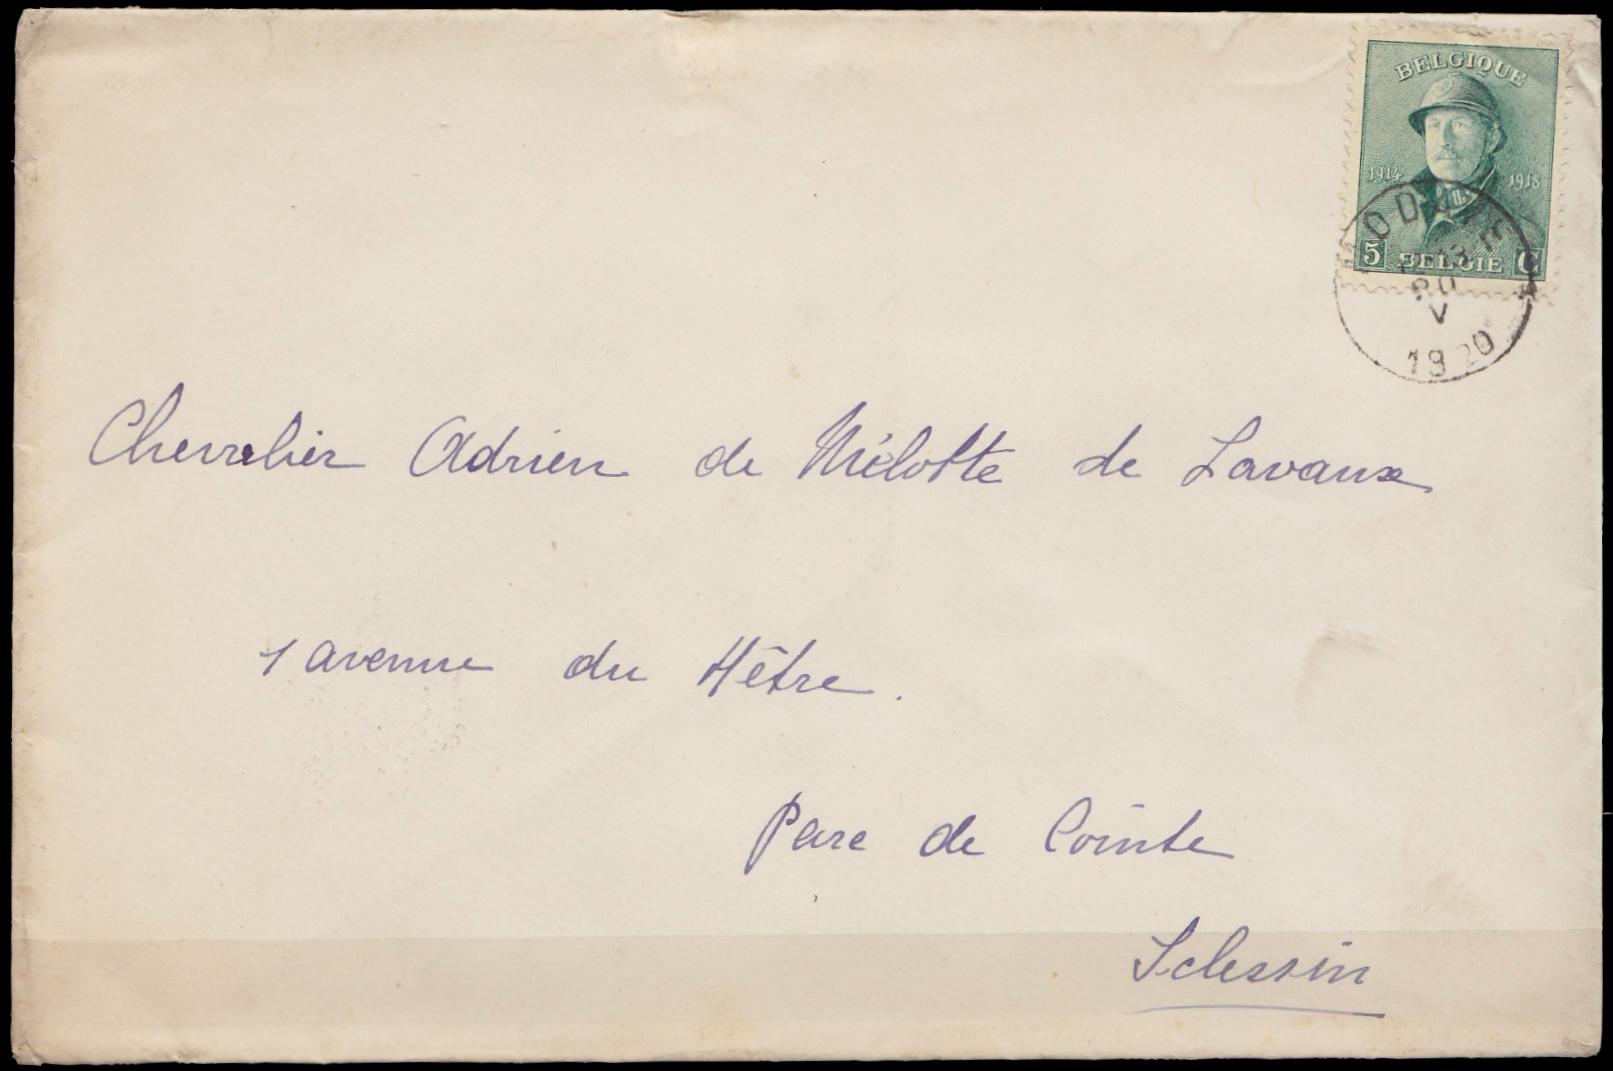 BELGIQUE
1914 1918
5 BELGIE C
V
1920
Chevalier Adrien de Mélotte de Lavaux
1 avenue du Hêtre.
Parc de Cointe
Sclessin